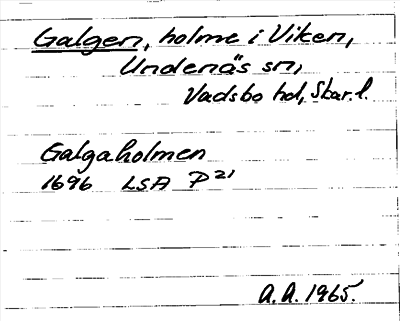 Galgen, holme i Viken,
Undenäs sn,
Vadsbo hd, Skar. l.
Galgaholmen
1696 LSA P 21
A. A. 1965.